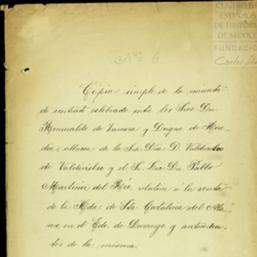 CENTRO DE
ESTUDIOS
DE HISTORIA
DE MEXICO
FUNDACIÓN
Carlos
Nº 6
Copia simple de la minuta
de contrato celebrado entre los Sres Dn
Romualdo de Zamora y Duque de Here-
dia, albacea de la Sra Dña D.
de Valdivielso y el S. Lic. Dn Pablo
Martinez del Rio, relativa á la venta
de la Hda. de Sta Catalina del Ala-
mo en el Edo de Durango y
dos de la misma.